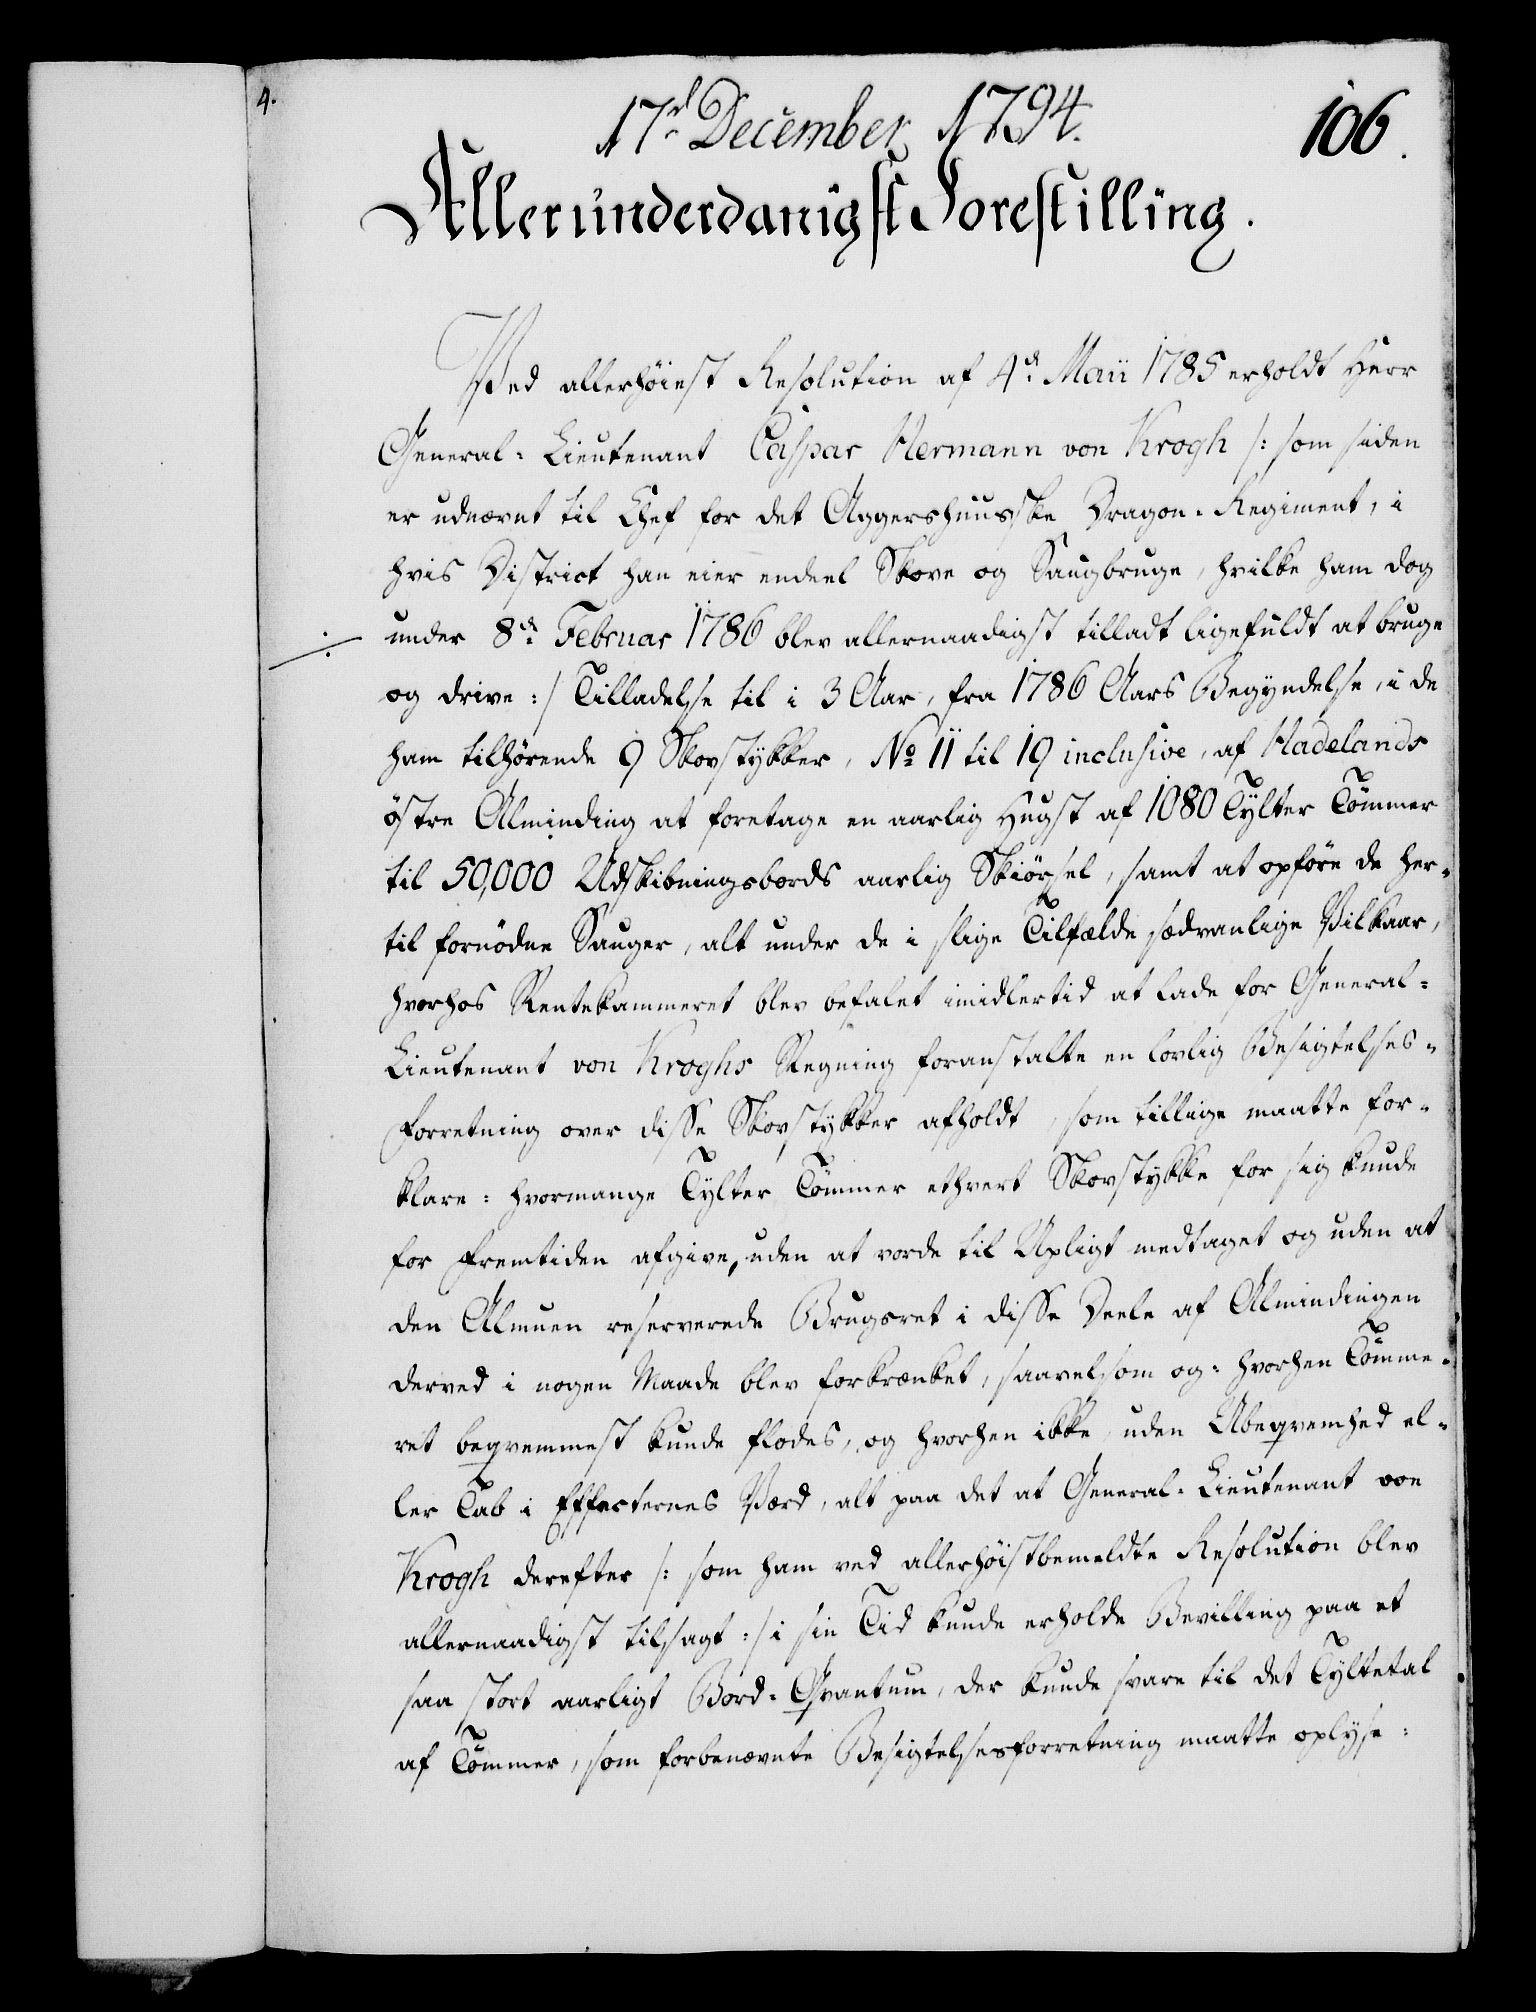 4.
17d December 1794.
106.
Allerunderdanigst Forestilling.
Ved allerhöiest Resolution af 4de Maii 1785 erholdt Herr
General-Lieutenant Caspar Hermann von Krogh /: som siden
er udnævnt til Chef for det Aggershuusske Dragon-Regiment, i
hvis District han eier endeel Skove og Saugbruge, hvilke ham dog
under 8de Februar 1786 blev allernaadigst tilladt ligefuldt at bruge
og drive :/ Tilladelse til i 3 Aar, fra 1786 Aars Begyndelse, i de
ham tilhørende 9 Skovstykker, No 11 til 19 inclusive, af Hadelands
östre Alminding at foretage en aarlig Hugst af 1080 Tylter Tömmer
til 50,000 Udskibningsbords aarlig Skiörsel, samt at opföre de her-
til fornödne Sauger, alt under de i slige Tilfælde sædvanlige Vilkaar,
hvorhos Rentekammeret blev befalet imidlertid at lade for General-
Lieutenant von Kroghs Regning foranstalte en lovlig Besigtelses-
forretning over disse Skovstykker afholdt, som tillige maatte for-
klare: hvormange Tylter Tömmer ethvert Skovstykke for sig kunde
for Fremtiden afgive, uden at vorde til Upligt medtaget og uden at
den Almuen reserverede Brugsret i disse Deele af Almindingen
derved i nogen Maade blev forkrænket, saavelsom og: hvorhen Tömme-
ret beqvemmest kunde flödes, og hvorhen ikke, uden Ubeqvemhed el-
ler Tab i Effecternes Værd, alt paa det at General-Lieutenant von
Krogh derefter /: som ham ved allerhöistbemeldte Resolution blev
allernaadigst tilsagt :/ i sin Tid kunde erholde Bevilling paa et
saa stort aarligt Bord-Qvantum, der kunde svare til det Tyltetal
af Tömmer, som forbenævnte Besigtelsesforretning maatte oplyse: